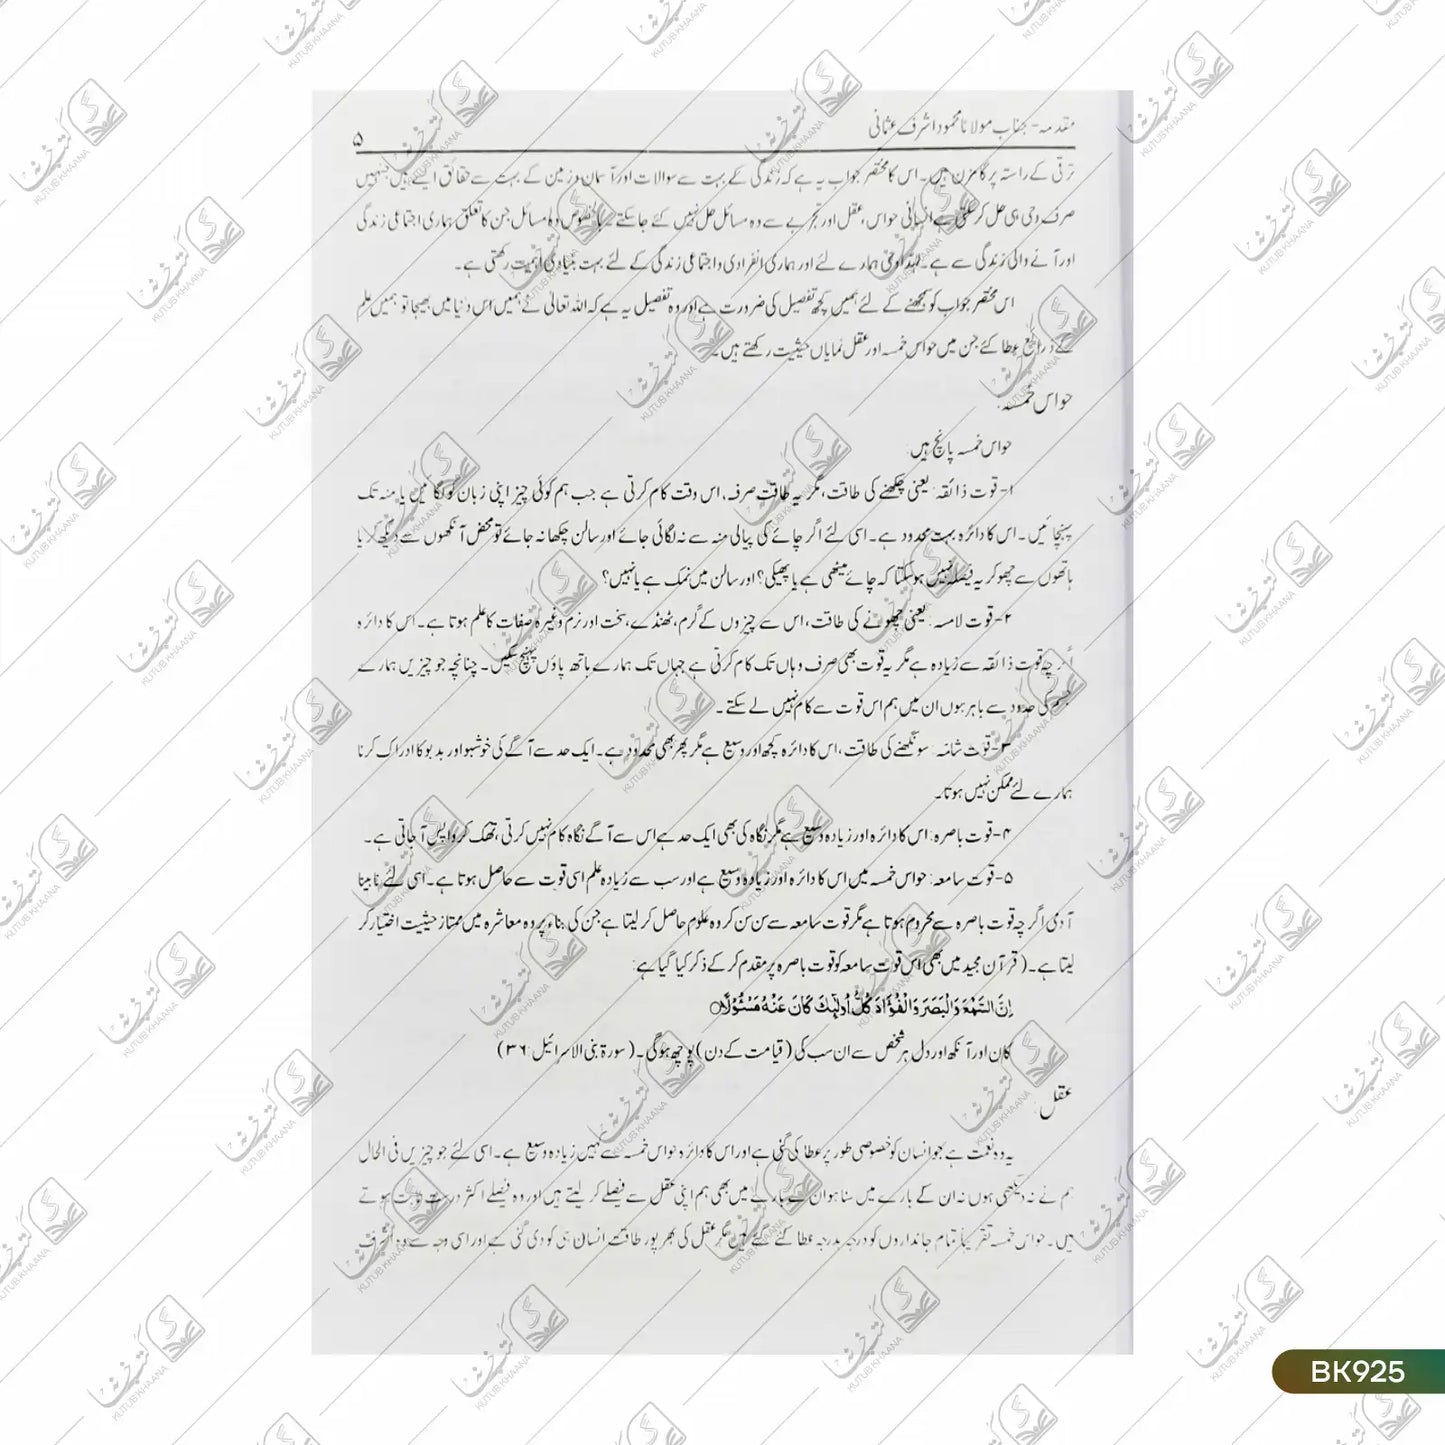 مقدمہ - جناب مولانا محمود اشرف عثمانی
۵
ترقی کے راستہ پر گامزن ہیں۔ اس کا مختصر جواب یہ ہے کہ زندگی کے بہت سے سوالات اور آسمان و زمین کے بہت سے حقائق ایسے ہیں جنہیں
صرف وحی ہی حل کر سکتی ہے انسانی حواس، عقل اور تجربے سے وہ مسائل حل نہیں کئے جا سکتے۔ بالخصوص وہ مسائل جن کا تعلق ہماری اجتماعی زندگی
اور آنے والی زندگی سے ہے۔ لہٰذا وحی ہمارے لئے اور ہماری انفرادی و اجتماعی زندگی کے لئے بہت بنیادی اہمیت رکھتی ہے۔
اس مختصر جواب کو سمجھنے کے لئے ہمیں کچھ تفصیل کی ضرورت ہے اور وہ تفصیل یہ ہے کہ اللہ تعالیٰ نے ہمیں اس دنیا میں بھیجا تو ہمیں علم
کے ذرائع عطا کئے جن میں حواس خمسہ اور عقل نمایاں حیثیت رکھتے ہیں۔
حواس خمسہ:
حواس خمسہ پانچ ہیں:
۱- قوت ذائقہ: یعنی چکھنے کی طاقت، مگر یہ طاقت صرف، اس وقت کام کرتی ہے جب ہم کوئی چیز اپنی زبان کو لگائیں یا منہ تک
پہنچائیں۔ اس کا دائرہ بہت محدود ہے۔ اسی لئے اگر چائے کی پیالی منہ سے نہ لگائی جائے اور سالن چکھا نہ جائے تو محض آنکھوں سے دیکھ کر یا
ہاتھوں سے چھو کر یہ فیصلہ نہیں ہو سکتا کہ چائے میٹھی ہے یا پھیکی؟ اور سالن میں نمک ہے یا نہیں؟
۲- قوت لامسہ: یعنی چھونے کی طاقت، اس سے چیزوں کے گرم، ٹھنڈے، سخت اور نرم وغیرہ صفات کا علم ہوتا ہے۔ اس کا دائرہ
اگرچہ قوت ذائقہ سے زیادہ ہے مگر یہ قوت بھی صرف وہاں تک کام کرتی ہے جہاں تک ہمارے ہاتھ پاؤں پہنچ سکیں۔ چنانچہ جو چیزیں ہمارے
جسم کی حدود سے باہر ہوں ان میں ہم اس قوت سے کام نہیں لے سکتے۔
۳- قوت شامہ: سونگھنے کی طاقت، اس کا دائرہ کچھ اور وسیع ہے مگر پھر بھی محدود ہے۔ ایک حد سے آگے کی خوشبو اور بدبو کا ادراک کرنا
ہمارے لئے ممکن نہیں ہوتا۔
۴- قوت باصرہ: اس کا دائرہ اور زیادہ وسیع ہے مگر نگاہ کی بھی ایک حد ہے اس سے آگے نگاہ کام نہیں کرتی، تھک کر واپس آ جاتی ہے۔
۵- قوت سامعہ: حواس خمسہ میں اس کا دائرہ اور زیادہ وسیع ہے اور سب سے زیادہ علم اسی قوت سے حاصل ہوتا ہے۔ اسی لئے نابینا
آدمی اگرچہ قوت باصرہ سے محروم ہوتا ہے مگر قوت سامعہ سے سن سن کر وہ علوم حاصل کر لیتا ہے جن کی بناء پر وہ معاشرہ میں ممتاز حیثیت اختیار کر
لیتا ہے۔ (قرآن مجید میں بھی اس قوت سامعہ کو قوت باصرہ پر مقدم کر کے ذکر کیا گیا ہے:
اِنَّ السَّمْعَ وَالْبَصَرَ وَالْفُؤَادَ كُلُّ اُولٰٓئِكَ كَانَ عَنْهُ مَسْئُوْلًا
کان اور آنکھ اور دل ہر شخص سے ان سب کی (قیامت کے دن) پوچھ ہوگی۔ (سورۃ بنی الاسرائیل: ۳۶)
عقل:
یہ وہ نعمت ہے جو انسان کو خصوصی طور پر عطا کی گئی ہے اور اس کا دائرہ حواس خمسہ سے کہیں زیادہ وسیع ہے۔ اسی لئے جو چیزیں فی الحال
ہم نے نہ دیکھی ہوں نہ ان کے بارے میں سنا ہو ان کے بارے میں بھی ہم اپنی عقل سے فیصلے کر لیتے ہیں اور وہ فیصلے اکثر درست ثابت ہوتے
ہیں۔ حواس خمسہ تقریباً تمام جانداروں کو درجہ بدرجہ عطا کئے گئے ہیں مگر عقل کی بھر پور طاقت انسان ہی کو دی گئی ہے اور اسی وجہ سے وہ اشرف
کتب خانہ
KUTUB KHAANA
BK925